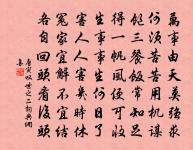 萬事由天莫強求
何須苦苦用機謀
飽三餐飯常知足
得一帆風便可收
生事事生何日了
害人人害幾時休
冤家宜解不宜結
各自回頭看後頭
唐寅 世之二 詞典網
集